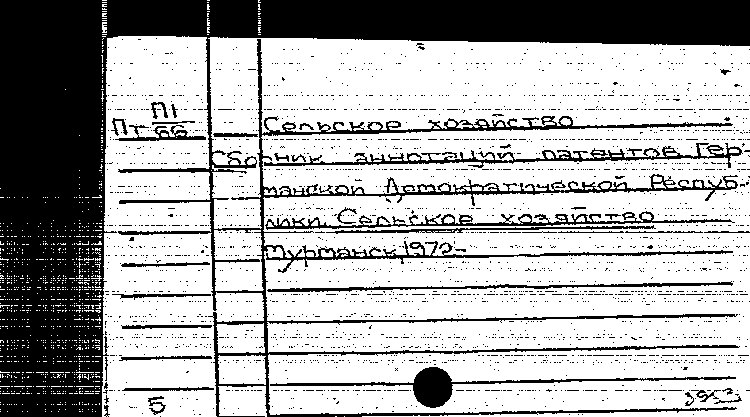 П1
Пт 66 Сельское хозяйство
Сборник аннотаций патентов Гер-
манской Демократической Респуб-
лики. Сельское хозяйство
Мурманск, 1972-
5